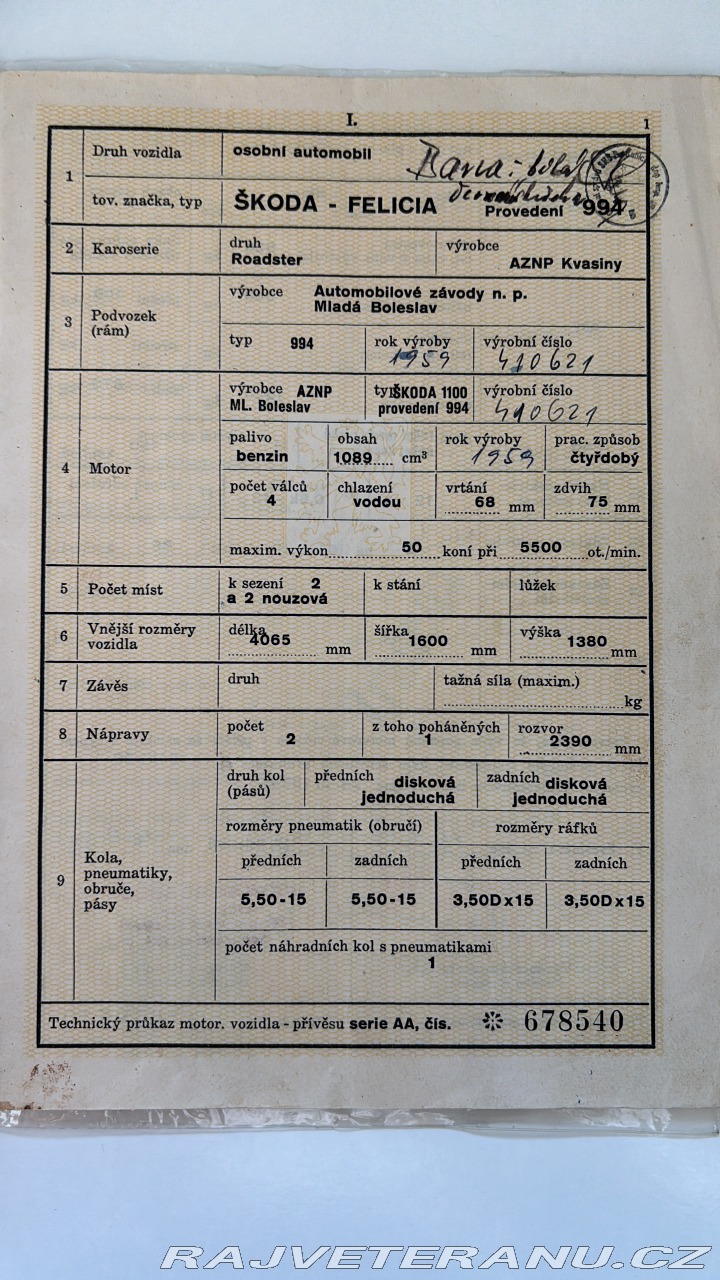 I. 1
1 Druh vozidla osobní automobil Barva: bílá
tov. značka, typ ŠKODA - FELICIA Provedení 994
2 Karoserie druh Roadster výrobce AZNP Kvasiny
3 Podvozek (rám) výrobce Automobilové závody n. p.
Mladá Boleslav
typ 994 rok výroby 1959 výrobní číslo 410621
4 Motor výrobce AZNP ML. Boleslav typ ŠKODA 1100 provedení 994 výrobní číslo 410621
palivo benzin obsah 1089 cm³ rok výroby 1959 prac. způsob čtyřdobý
počet válců 4 chlazení vodou vrtání 68 mm zdvih 75 mm
maxim. výkon 50 koní při 5500 ot./min.
5 Počet míst k sezení 2 a 2 nouzová k stání lůžek
6 Vnější rozměry vozidla délka 4065 mm šířka 1600 mm výška 1380 mm
7 Závěs druh tažná síla (maxim.) kg
8 Nápravy počet 2 z toho poháněných 1 rozvor 2390 mm
9 Kola, pneumatiky, obruče, pásy druh kol (pásů) předních disková jednoduchá zadních disková jednoduchá
rozměry pneumatik (obručí) rozměry ráfků
předních zadních předních zadních
5,50-15 5,50-15 3,50Dx15 3,50Dx15
počet náhradních kol s pneumatikami
1
Technický průkaz motor. vozidla - přívěsu serie AA, čís. 678540
RAJVETERANU.CZ